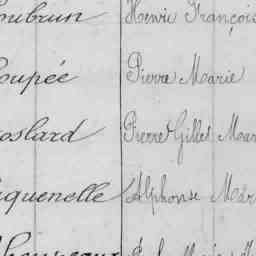 oubrun Henri François
oupée Pierre Marie
oslard Pierre Gilles Mar
quenelle Alphonse Mar